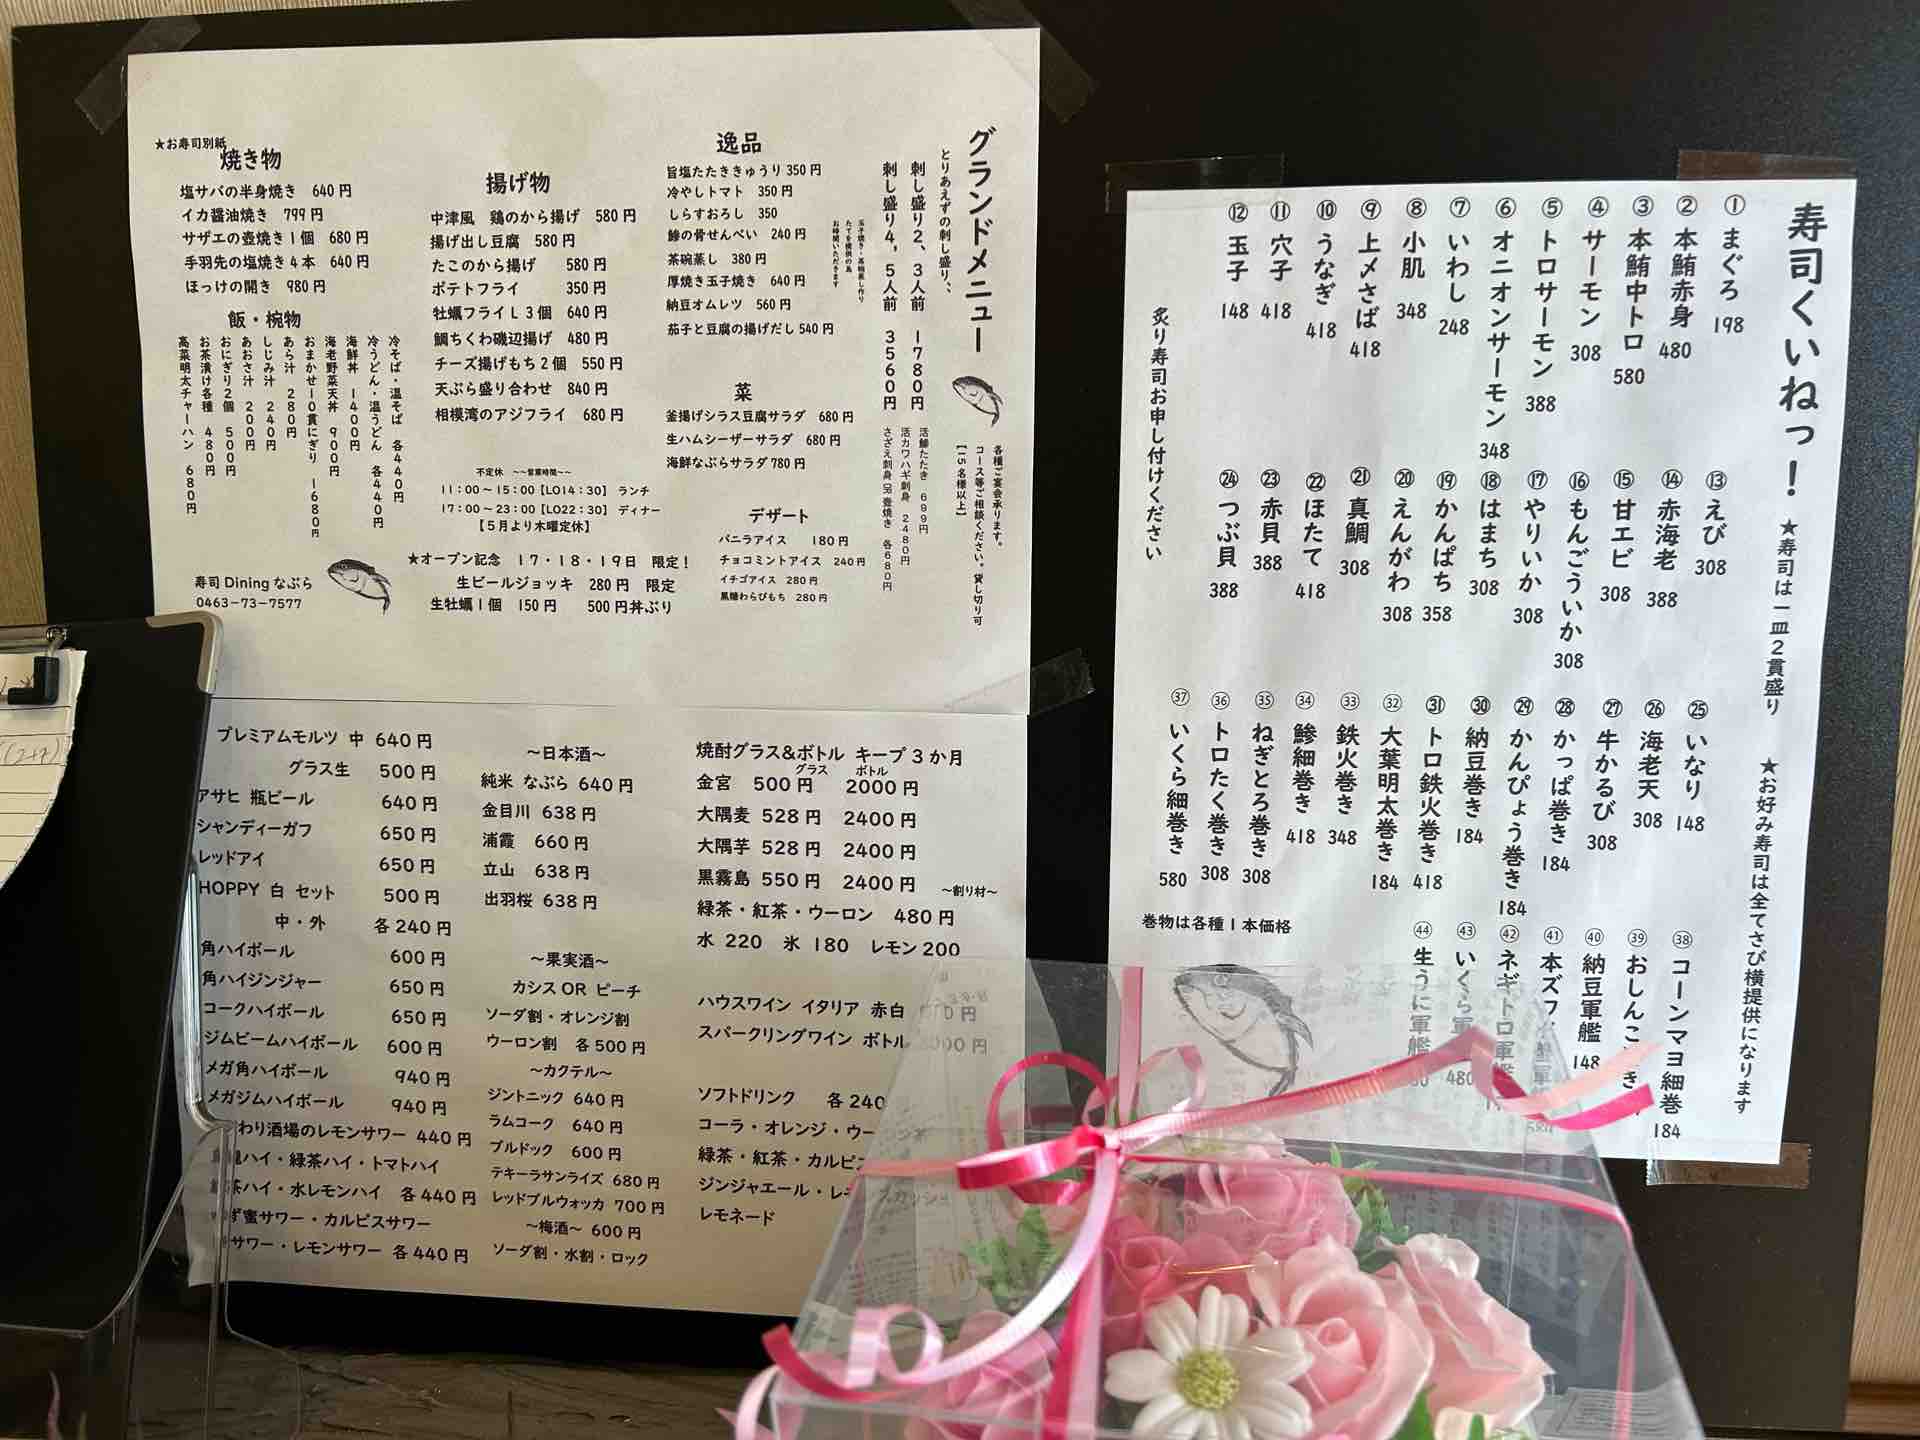 グランドメニュー
とりあえずの刺し盛り、、
刺し盛り2、3人前 1780円
刺し盛り4，5人前 3560円
活鯵たたき 699円
活カワハギ刺身 2480円
さざえ刺身 OR 壺焼き 各680円
各種ご宴会承ります。
コース等ご相談ください。貸し切り可
【15名様以上】
逸品
旨塩たたききゅうり 350円
冷やしトマト 350円
しらすおろし 350
鯵の骨せんべい 240円
茶碗蒸し 380円
厚焼き玉子焼き 640円
納豆オムレツ 560円
茄子と豆腐の揚げだし 540円
玉子焼き・茶碗蒸し作り
たてを提供の為
お時間いただきます
菜
釜揚げシラス豆腐サラダ 680円
生ハムシーザーサラダ 680円
海鮮なぶらサラダ 780円
デザート
バニラアイス 180円
チョコミントアイス 240円
イチゴアイス 280円
黒糖わらびもち 280円
揚げ物
中津風 鶏のから揚げ 580円
揚げ出し豆腐 580円
たこのから揚げ 580円
ポテトフライ 350円
牡蠣フライL3個 640円
鯛ちくわ磯辺揚げ 480円
チーズ揚げもち2個 550円
天ぷら盛り合わせ 840円
相模湾のアジフライ 680円
不定休 ～～営業時間～～
11：00～15：00【LO14：30】 ランチ
17：00～23：00【LO22：30】 ディナー
【5月より木曜定休】
★オープン記念 17・18・19日 限定！
生ビールジョッキ 280円 限定
生牡蠣1個 150円 500円丼ぶり
★お寿司別紙
焼き物
塩サバの半身焼き 640円
イカ醤油焼き 799円
サザエの壺焼き1個 680円
手羽先の塩焼き4本 640円
ほっけの開き 980円
飯・椀物
冷そば・温そば 各440円
冷うどん・温うどん 各440円
海鮮丼 1400円
海老野菜天丼 900円
おまかせ10貫にぎり 1680円
あら汁 280円
しじみ汁 240円
あおさ汁 200円
おにぎり2個 500円
お茶漬け各種 480円
高菜明太チャーハン 680円
寿司Diningなぶら
0463-73-7577
プレミアムモルツ 中 640円
グラス生 500円
アサヒ 瓶ビール 640円
シャンディーガフ 650円
レッドアイ 650円
HOPPY 白 セット 500円
中・外 各240円
角ハイボール 600円
角ハイジンジャー 650円
コークハイボール 650円
ジムビームハイボール 600円
メガ角ハイボール 940円
メガジムハイボール 940円
わり酒場のレモンサワー 440円
ハイ・緑茶ハイ・トマトハイ
茶ハイ・水レモンハイ 各440円
ず蜜サワー・カルピスサワー
サワー・レモンサワー 各440円
～日本酒～
純米 なぶら 640円
金目川 638円
浦霞 660円
立山 638円
出羽桜 638円
～果実酒～
カシス OR ピーチ
ソーダ割・オレンジ割
ウーロン割 各500円
～カクテル～
ジントニック 640円
ラムコーク 640円
ブルドック 600円
テキーラサンライズ 680円
レッドブルウォッカ 700円
～梅酒～ 600円
ソーダ割・水割・ロック
焼酎グラス&ボトル キープ3か月
グラス ボトル
金宮 500円 2000円
大隅麦 528円 2400円
大隅芋 528円 2400円
黒霧島 550円 2400円
～割り材～
緑茶・紅茶・ウーロン 480円
水 220 氷 180 レモン200
ハウスワイン イタリア 赤白
スパークリングワイン ボトル
ソフトドリンク 各240
コーラ・オレンジ・ウー
緑茶・紅茶・カルピス
ジンジャエール・レ
レモネード
寿司くいねっ！
★寿司は一皿2貫盛り ★お好み寿司は全てさび横提供になります
①まぐろ 198
②本鮪赤身 480
③本鮪中トロ 580
④サーモン 308
⑤トロサーモン 388
⑥オニオンサーモン 348
⑦いわし 248
⑧小肌 348
⑨上〆さば 418
⑩うなぎ 418
⑪穴子 418
⑫玉子 148
炙り寿司お申し付けください
⑬えび 308
⑭赤海老 388
⑮甘エビ 308
⑯もんごういか 308
⑰やりいか 308
⑱はまち 308
⑲かんぱち 358
⑳えんがわ 308
㉑真鯛 308
㉒ほたて 418
㉓赤貝 388
㉔つぶ貝 388
㉕いなり 148
㉖海老天 308
㉗牛かるび 308
㉘かっぱ巻き 184
㉙かんぴょう巻き 184
㉚納豆巻き 184
㉛トロ鉄火巻き 418
㉜大葉明太巻き 184
㉝鉄火巻き 348
㉞鯵細巻き 418
㉟ねぎとろ巻き 308
㊱トロたく巻き 308
㊲いくら細巻き 580
巻物は各種1本価格
㊳コーンマヨ細巻 184
㊴おしんこ
㊵納豆軍艦 148
㊶本ズワ
㊷ネギトロ軍艦
㊸いくら軍 480
㊹生うに軍艦